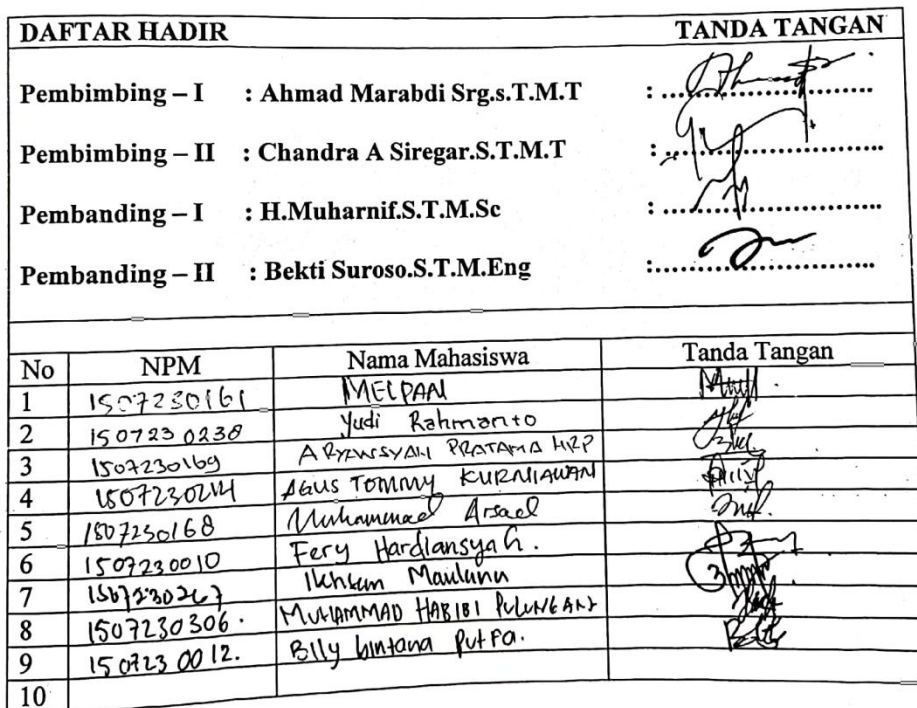 DAFTAR HADIR TANDA TANGAN
Pembimbing – I : Ahmad Marabdi Srg.s.T.M.T :
Pembimbing – II : Chandra A Siregar.S.T.M.T :
Pembanding – I : H.Muharnif.S.T.M.Sc :
Pembanding – II : Bekti Suroso.S.T.M.Eng :
No NPM Nama Mahasiswa Tanda Tangan
1 1507230161 MELPAN
2 1507230238 Yudi Rahmanto
3 1507230169 ARYANSYAH PRATAMA HRP
4 1507230214 AGUS TOMMY KURNIAWAN
5 1507230168 Muhammad Arsael
6 1507230010 Fery Hardiansyah.
7 1507230267 Ikhsan Maulana
8 1507230306. MUHAMMAD HABIBI PULUNGAN
9 1507230012. Billy bintana Putra.
10